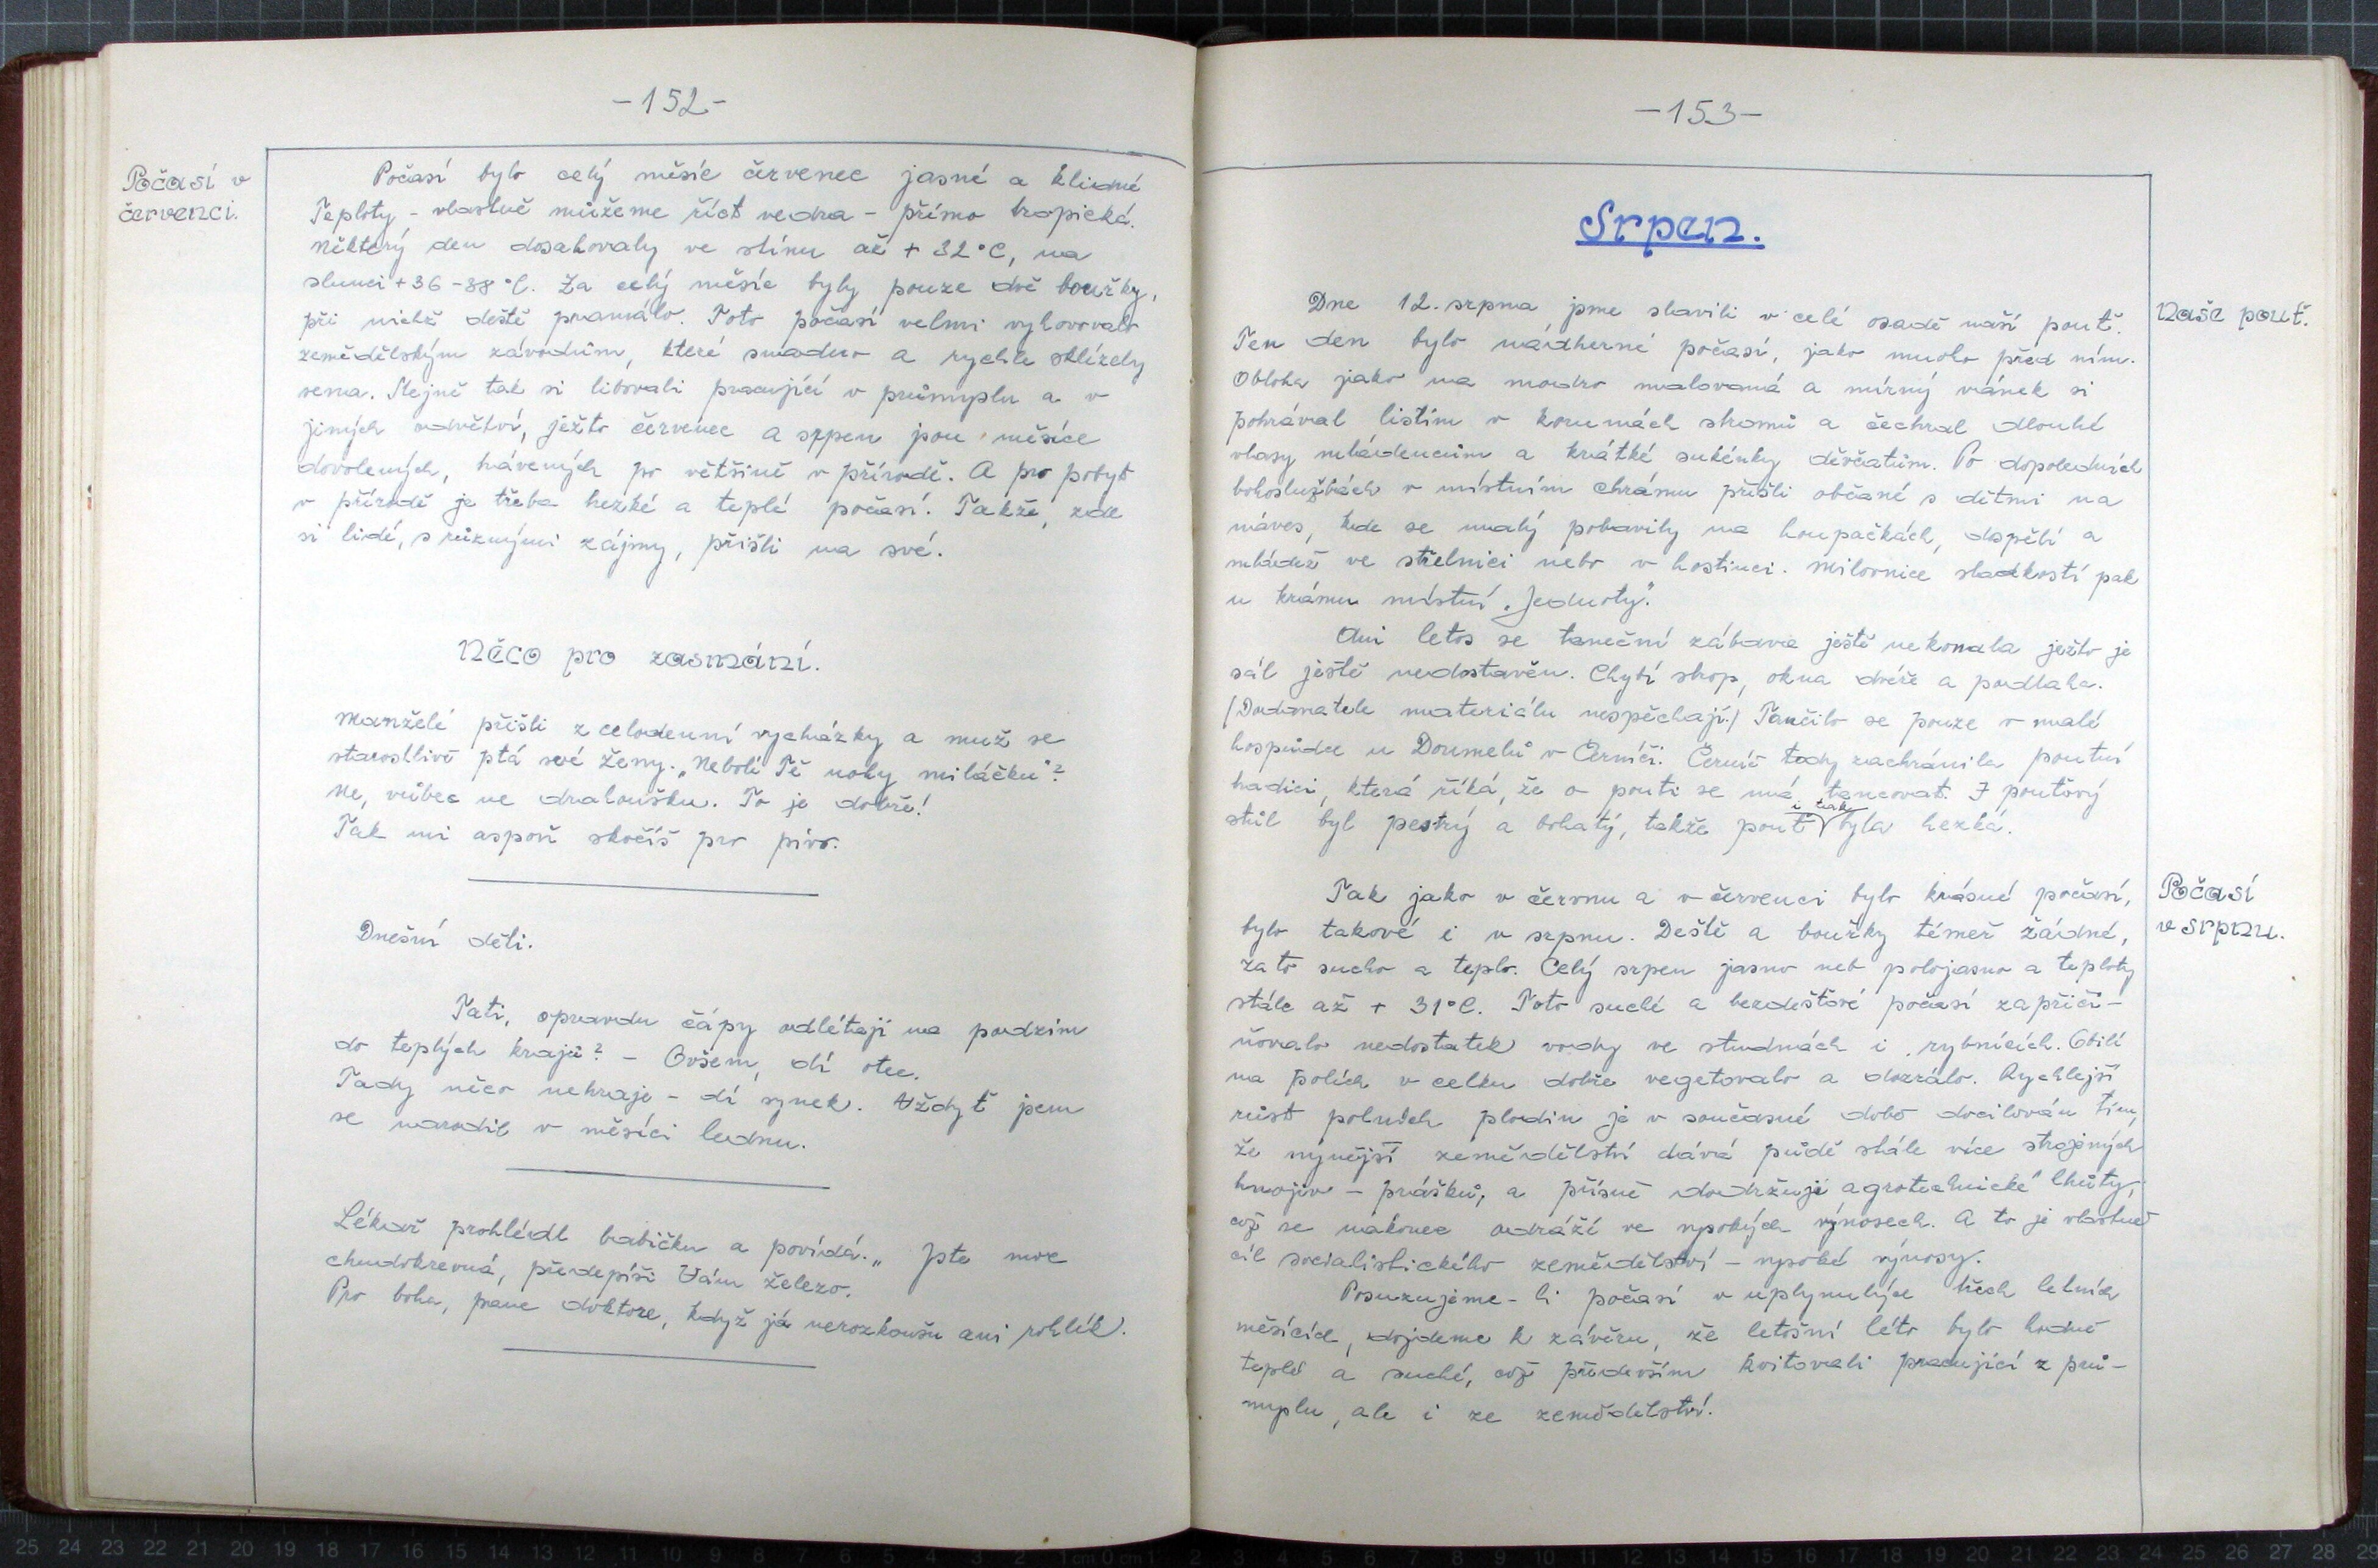 -152-
Počasí v
červenci.
Počasí bylo celý měsíc červenec jasné a klidné
Teploty - vlastně můžeme říct vedra - přímo tropická.
Některý den dosahovaly ve stínu až + 32°C, na
slunci +36-38°C. Za celý měsíc byly pouze dvě bouřky,
při nichž deště pramálo. Toto počasí velmi vyhovovalo
zemědělským závodům, které snadno a rychle sklízely
sena. Stejně tak si libovali pracující v průmyslu a v
jiných odvětví, ježto červenec a srpen jsou měsíce
dovolených, trávených po většině v přírodě. A pro pobyt
v přírodě je třeba hezké a teplé počasí. Takže, zde
si lidé, s různými zájmy, přišli na své.
Něco pro zasmání.
Manželé přišli z celodenní vycházky a muž se
starostlivě ptá své ženy. „Nebolí Tě nohy miláčku"?
Ne, vůbec ne drahoušku. To je dobře!
Tak mi aspoň skočíš pro pivo.
Dnešní děti.
Tati, opravdu čápy odlétají na podzim
do teplých krajů? - Ovšem, dí otec.
Tady něco nehraje - dí synek. Vždyť jsem
se narodil v měsíci lednu.
Lékař prohlédl babičku a povídá. „ Jste moc
chudokrevná, předepíši Vám železo.
Pro boha, pane doktore, když já nerozkoušu ani rohlík.
-153-
Srpen.
Naše pouť.
Dne 12. srpna jsme slavili v celé osadě naší pouť.
Ten den bylo nádherné počasí, jako mnoho před ním.
Obloha jako na modro malovaná a mírný vánek si
pohrával listím v korunách stromů a čechral dlouhé
vlasy mládencům a krátké sukénky děvčatům. Po dopoledních
bohoslužbách v místním chrámu přišli občané s dětmi na
náves, kde se malý pobavily na houpačkách, dospělí a
mládež ve střelnici nebo v hostinci. Milovnice sladkostí pak
u krámu místní „Jednoty".
Ani letos se taneční zábava ještě nekonala ježto je
sál ještě nedostavěn. Chybí strop, okna dvéře a podlaha.
(Dodavatelé materiálu nespěchají.) Tančilo se pouze v malé
hospůdce u Doumelů v Černíči. Černíč tedy zachránila poutní
tradici, která říká, že o pouti se má tancovat. I pouťový
stůl byl pestrý a bohatý, takže pouť i tak byla hezká.
Počasí
v srpnu.
Tak jako v červnu a v červenci bylo krásné počasí,
bylo takové i v srpnu. Deště a bouřky téměř žádné,
zato sucho a teplo. Celý srpen jasno neb polojasno a teploty
stále až + 31°C. Toto suché a bezdešťové počasí zapříči-
ňovalo nedostatek vody ve studnách i rybnících. Obilí
na polích v celku dobře vegetovalo a dozrálo. Rychlejší
růst polních plodin je v současné době docilován tím,
že nynější zemědělství dává půdě stále více strojených
hnojiv - prášků, a přísně dodržuje agrotechnické lhůty,
což se nakonec odráží ve vysokých výnosech. A to je vlastně
cíl socialistického zemědělství - vysoké výnosy.
Posuzujeme-li počasí v uplynulých třech letních
měsících, dojdeme k závěru, že letošní léto bylo hodně
teplé a suché, což především kvitovali pracující z prů-
myslu, ale i ze zemědělství.